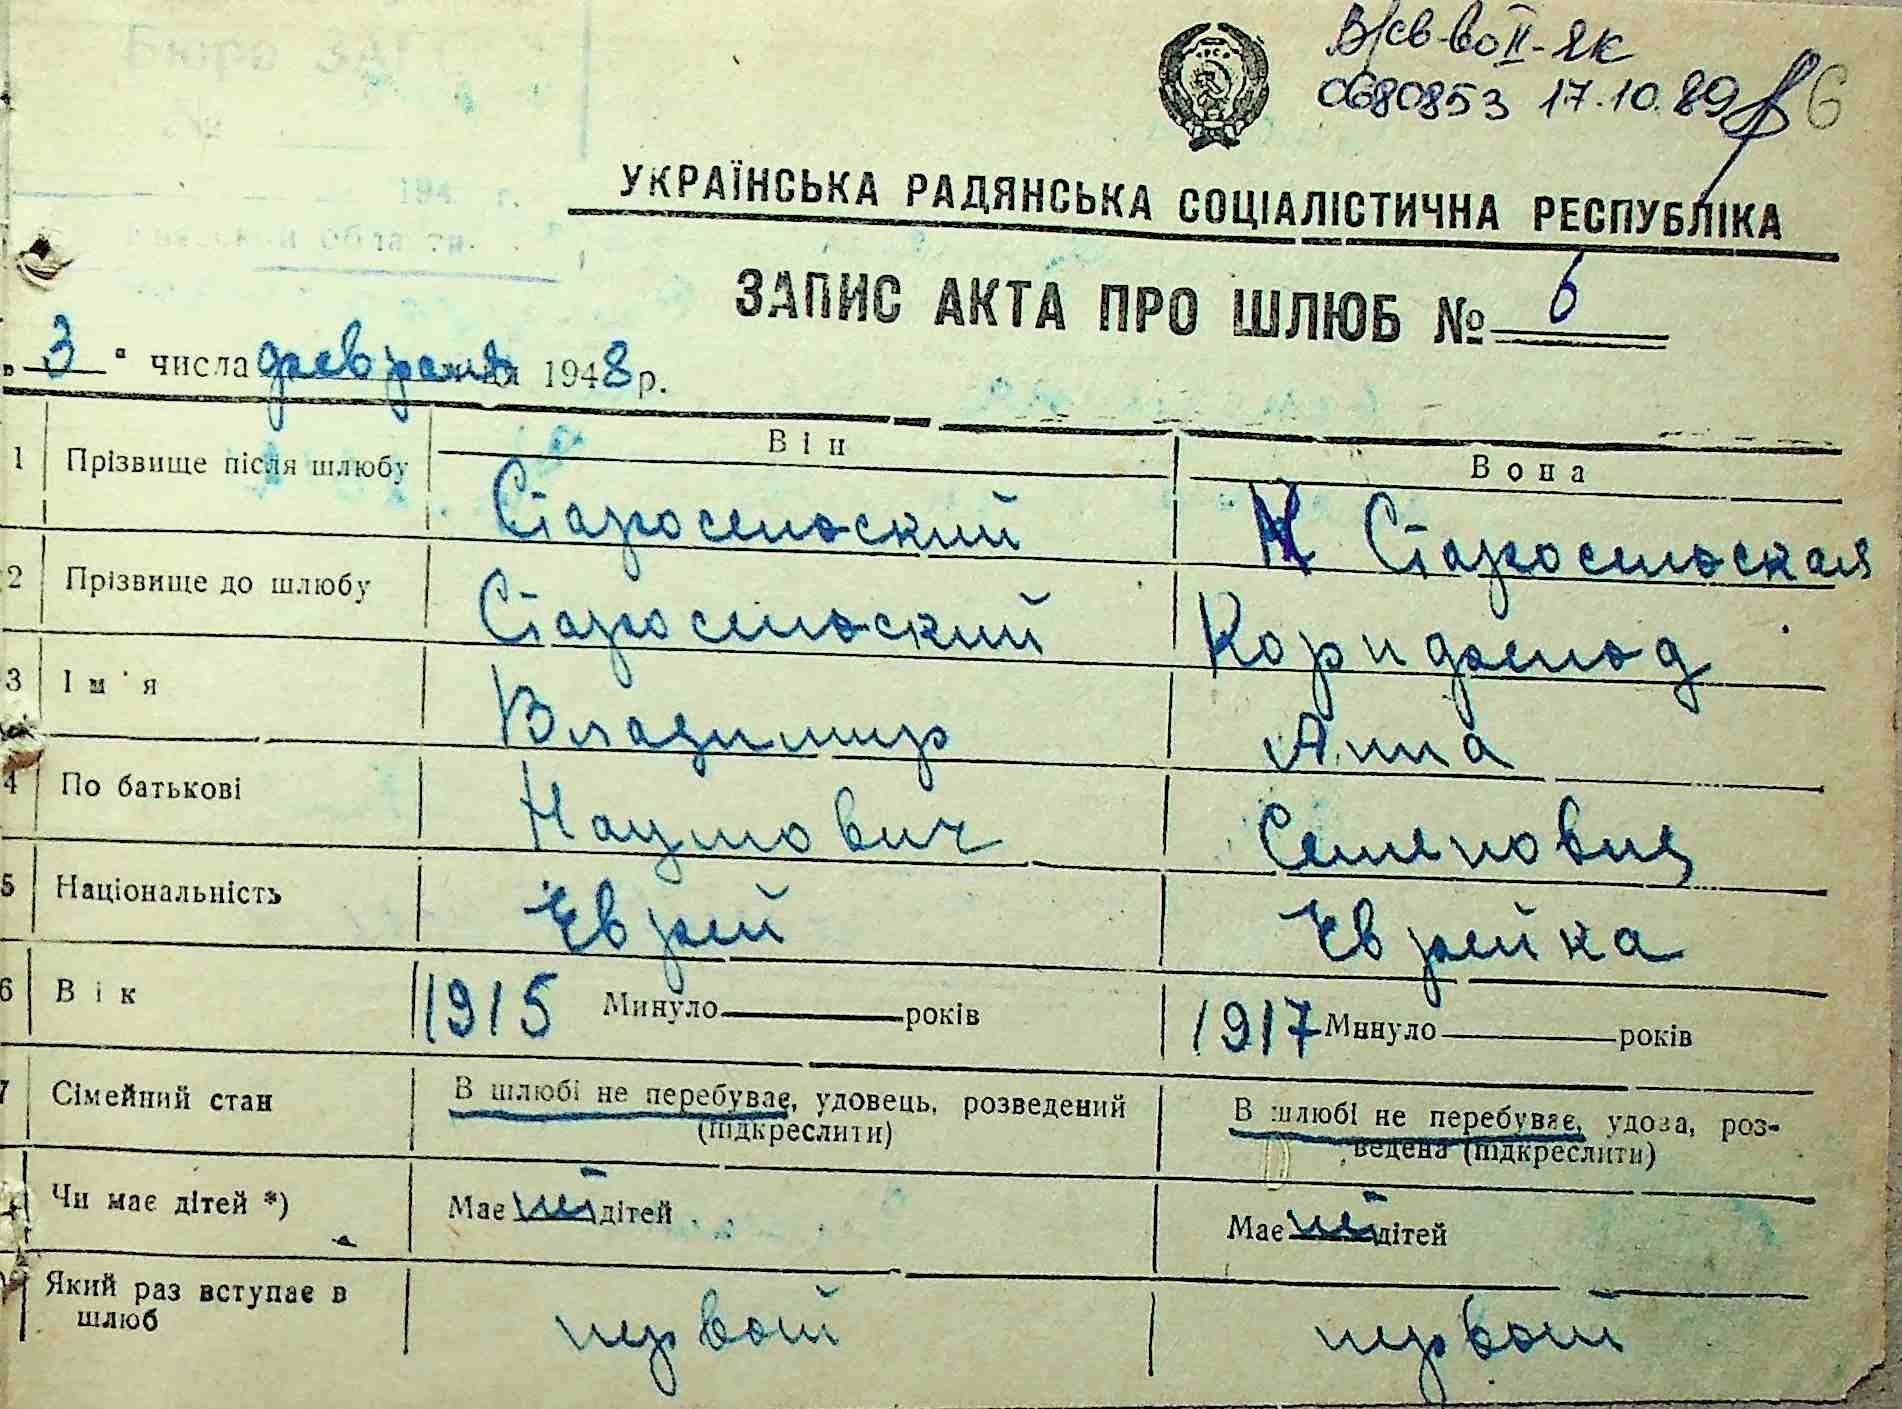 В/св-во II-ЯК
0680853 17.10.89 6
УКРАЇНСЬКА РАДЯНСЬКА СОЦІАЛІСТИЧНА РЕСПУБЛІКА
ЗАПИС АКТА ПРО ШЛЮБ № 6
„ 3 " числа февраля 1948 р.
Він Вона
1 Прізвище після шлюбу Старосельский Старосельская
2 Прізвище до шлюбу Старосельский
3 Ім'я Владимир Анна
4 По батькові Наумович Семеновна
5 Національність Еврей Еврейка
6 Вік 1915 Минуло років 1917 Минуло років
7 Сімейний стан В шлюбі не перебуває, удовець, розведений (підкреслити) В шлюбі не перебуває, удова, роз-
ведена (підкреслити)
Чи має дітей *) Має нет дітей Має нет дітей
Який раз вступає в
шлюб первый первый